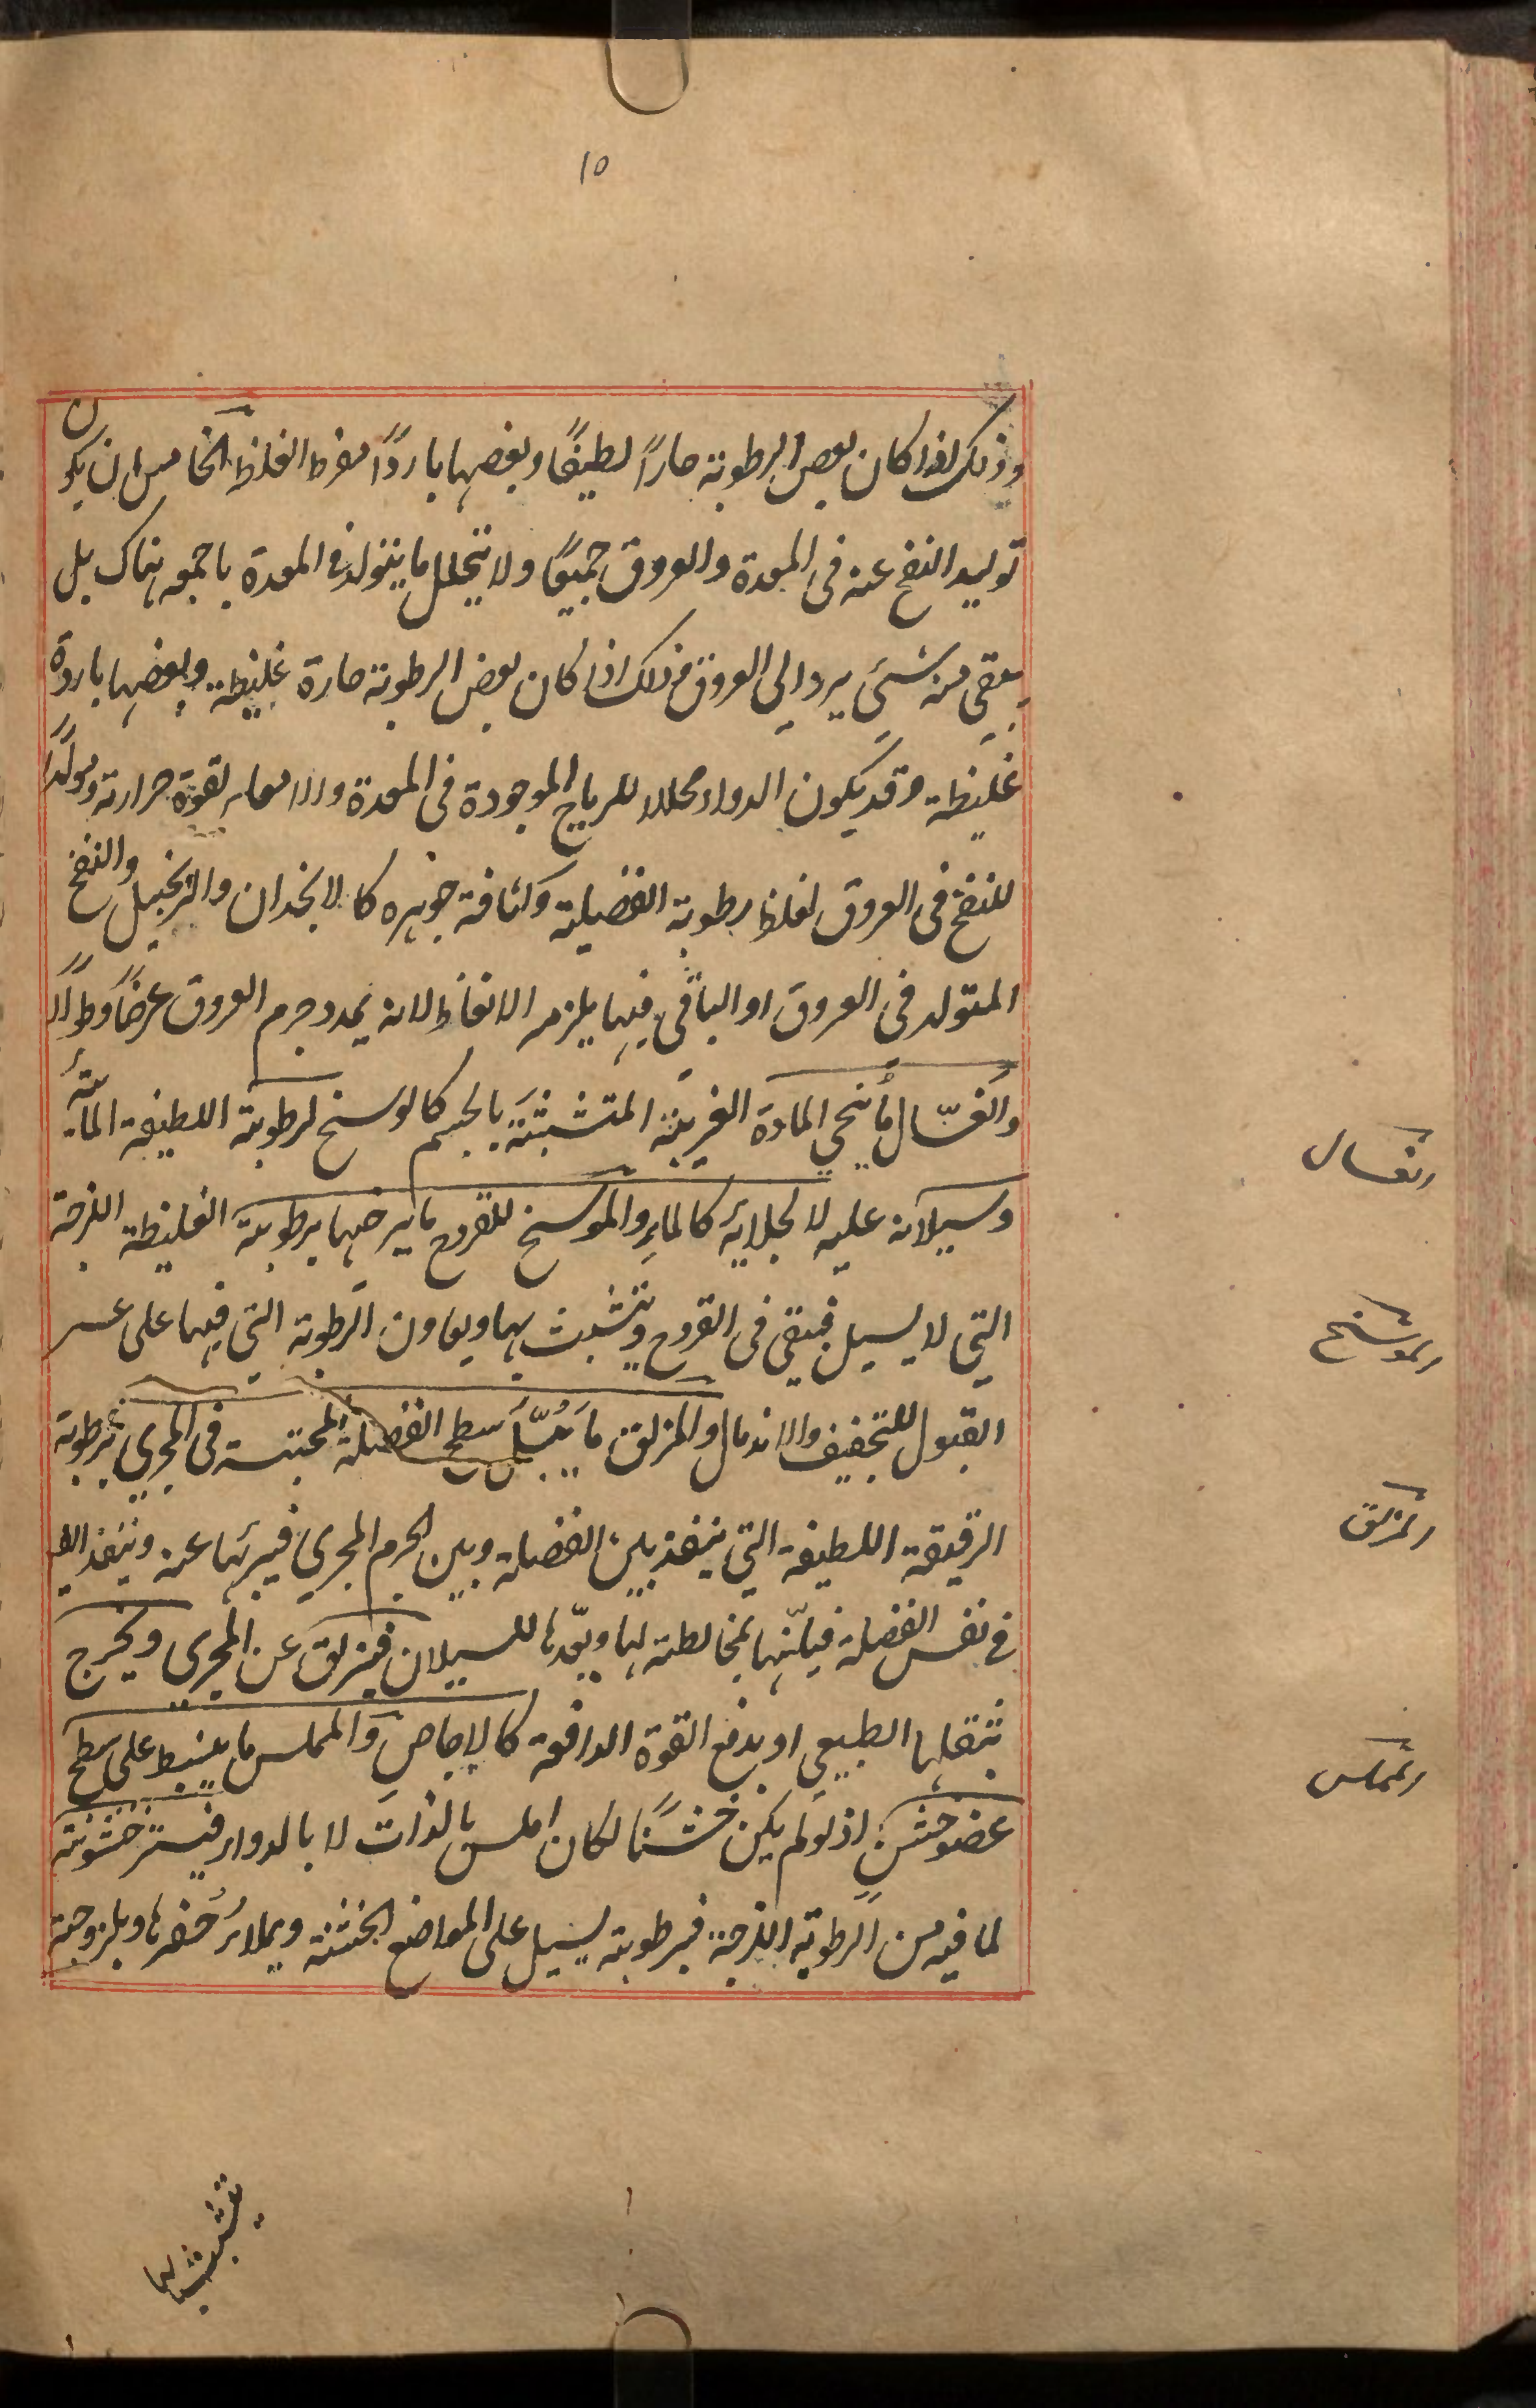 15
وذلک اذا کان بعض الرطوبة حاراً لطیفاً وبعضها بارداً مفرط الغلظ الخامس ان یکون
تولید النفخ عنه فی المعدة والعروق جمیعاً ولا یتحلل ما یتولد فی المعدة باجمعه هناک بل
یبقی منه شیء یرد الی العروق وذلک اذا کان بعض الرطوبة حارة غلیظة وبعضها باردة
غلیظة وقد یکون الدواء محللا للریاح الموجودة فی المعدة والامعاء لقوة حرارته ومولداً
للنفخ فی العروق لغلظ رطوبة الفضلیة وکثافة جوهره کالانجدان والزنجبیل والنفخ
المتولد فی العروق او الباقی فیها یلزمه الانعاظ لانه یمدد جرم العروق عرضاً وطولاً
والغسّال ما ینحی المادة الغریبة المتشبثة بالجسم کالوسخ لرطوبة اللطیفة المائیة
وسیلانه علیه لا لجلائه کالماء والموسخ للقروح ما یرخیها برطوبته الغلیظة اللزجة
التی لا یسیل فیبقی فی القروح ویتشبث بها ویعاون الرطوبة التی فیها علی عسر
القبول للتجفیف والاندمال والمزلق ما یبلّ سطح الفضلة المحتبسة فی المجری برطوبة
الرقیقة اللطیفة التی ینفذ بین الفضلة وبین الجرم المجری فیبرئها عنه وینفذ ایضا
فی نفس الفضلة فیلینها بمخالطته لها ویعدها للسیلان فیزلق عن المجری ویخرج
بثقلها الطبیعی او بدفع القوة الدافعة کالاجاص والمملس ما ینبسط علی سطح
عضو خشن اذ لو لم یکن خشناً لکان املس بالذات لا بالدواء فیستر خشونته
لما فیه من الرطوبة اللزجة فبرطوبته یسیل علی المواضع الخشنة ویملاء حفرها وبلزوجته
الغسال
الموسخ
المزلق
المملس
یتشبث بها